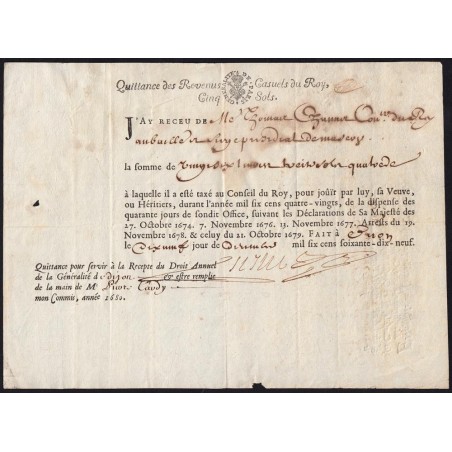 Quittance des Revenus Casuels du Roy,
Cinq Sols.
J'AY RECEU DE Me Thomas Chanut Conr. du Roy
au bailliage et siege presidial de mascon
la somme de vingt six livres treize sols quatre d
à laquelle il a esté taxé au Conseil du Roy, pour joüir par luy, sa Veuve,
ou Héritiers, durant l'année mil six cens quatre-vingts, de la dispense des
quarante jours de sondit Office, suivant les Déclarations de Sa Majesté des
27. Octobre 1674. 7. Novembre 1676. 13. Novembre 1677. Arrests du 19.
Novembre 1678. & celuy du 21. Octobre 1679. FAIT à Dijon
le Dixneuf jour de Decembre mil six cens soixante-dix-neuf.
Quittance pour servir à la Recepte du Droit Annuel
de la Généralité de Dijon & estre remplie
de la main de Me Pierre Tardy
mon Commis, année 1680.